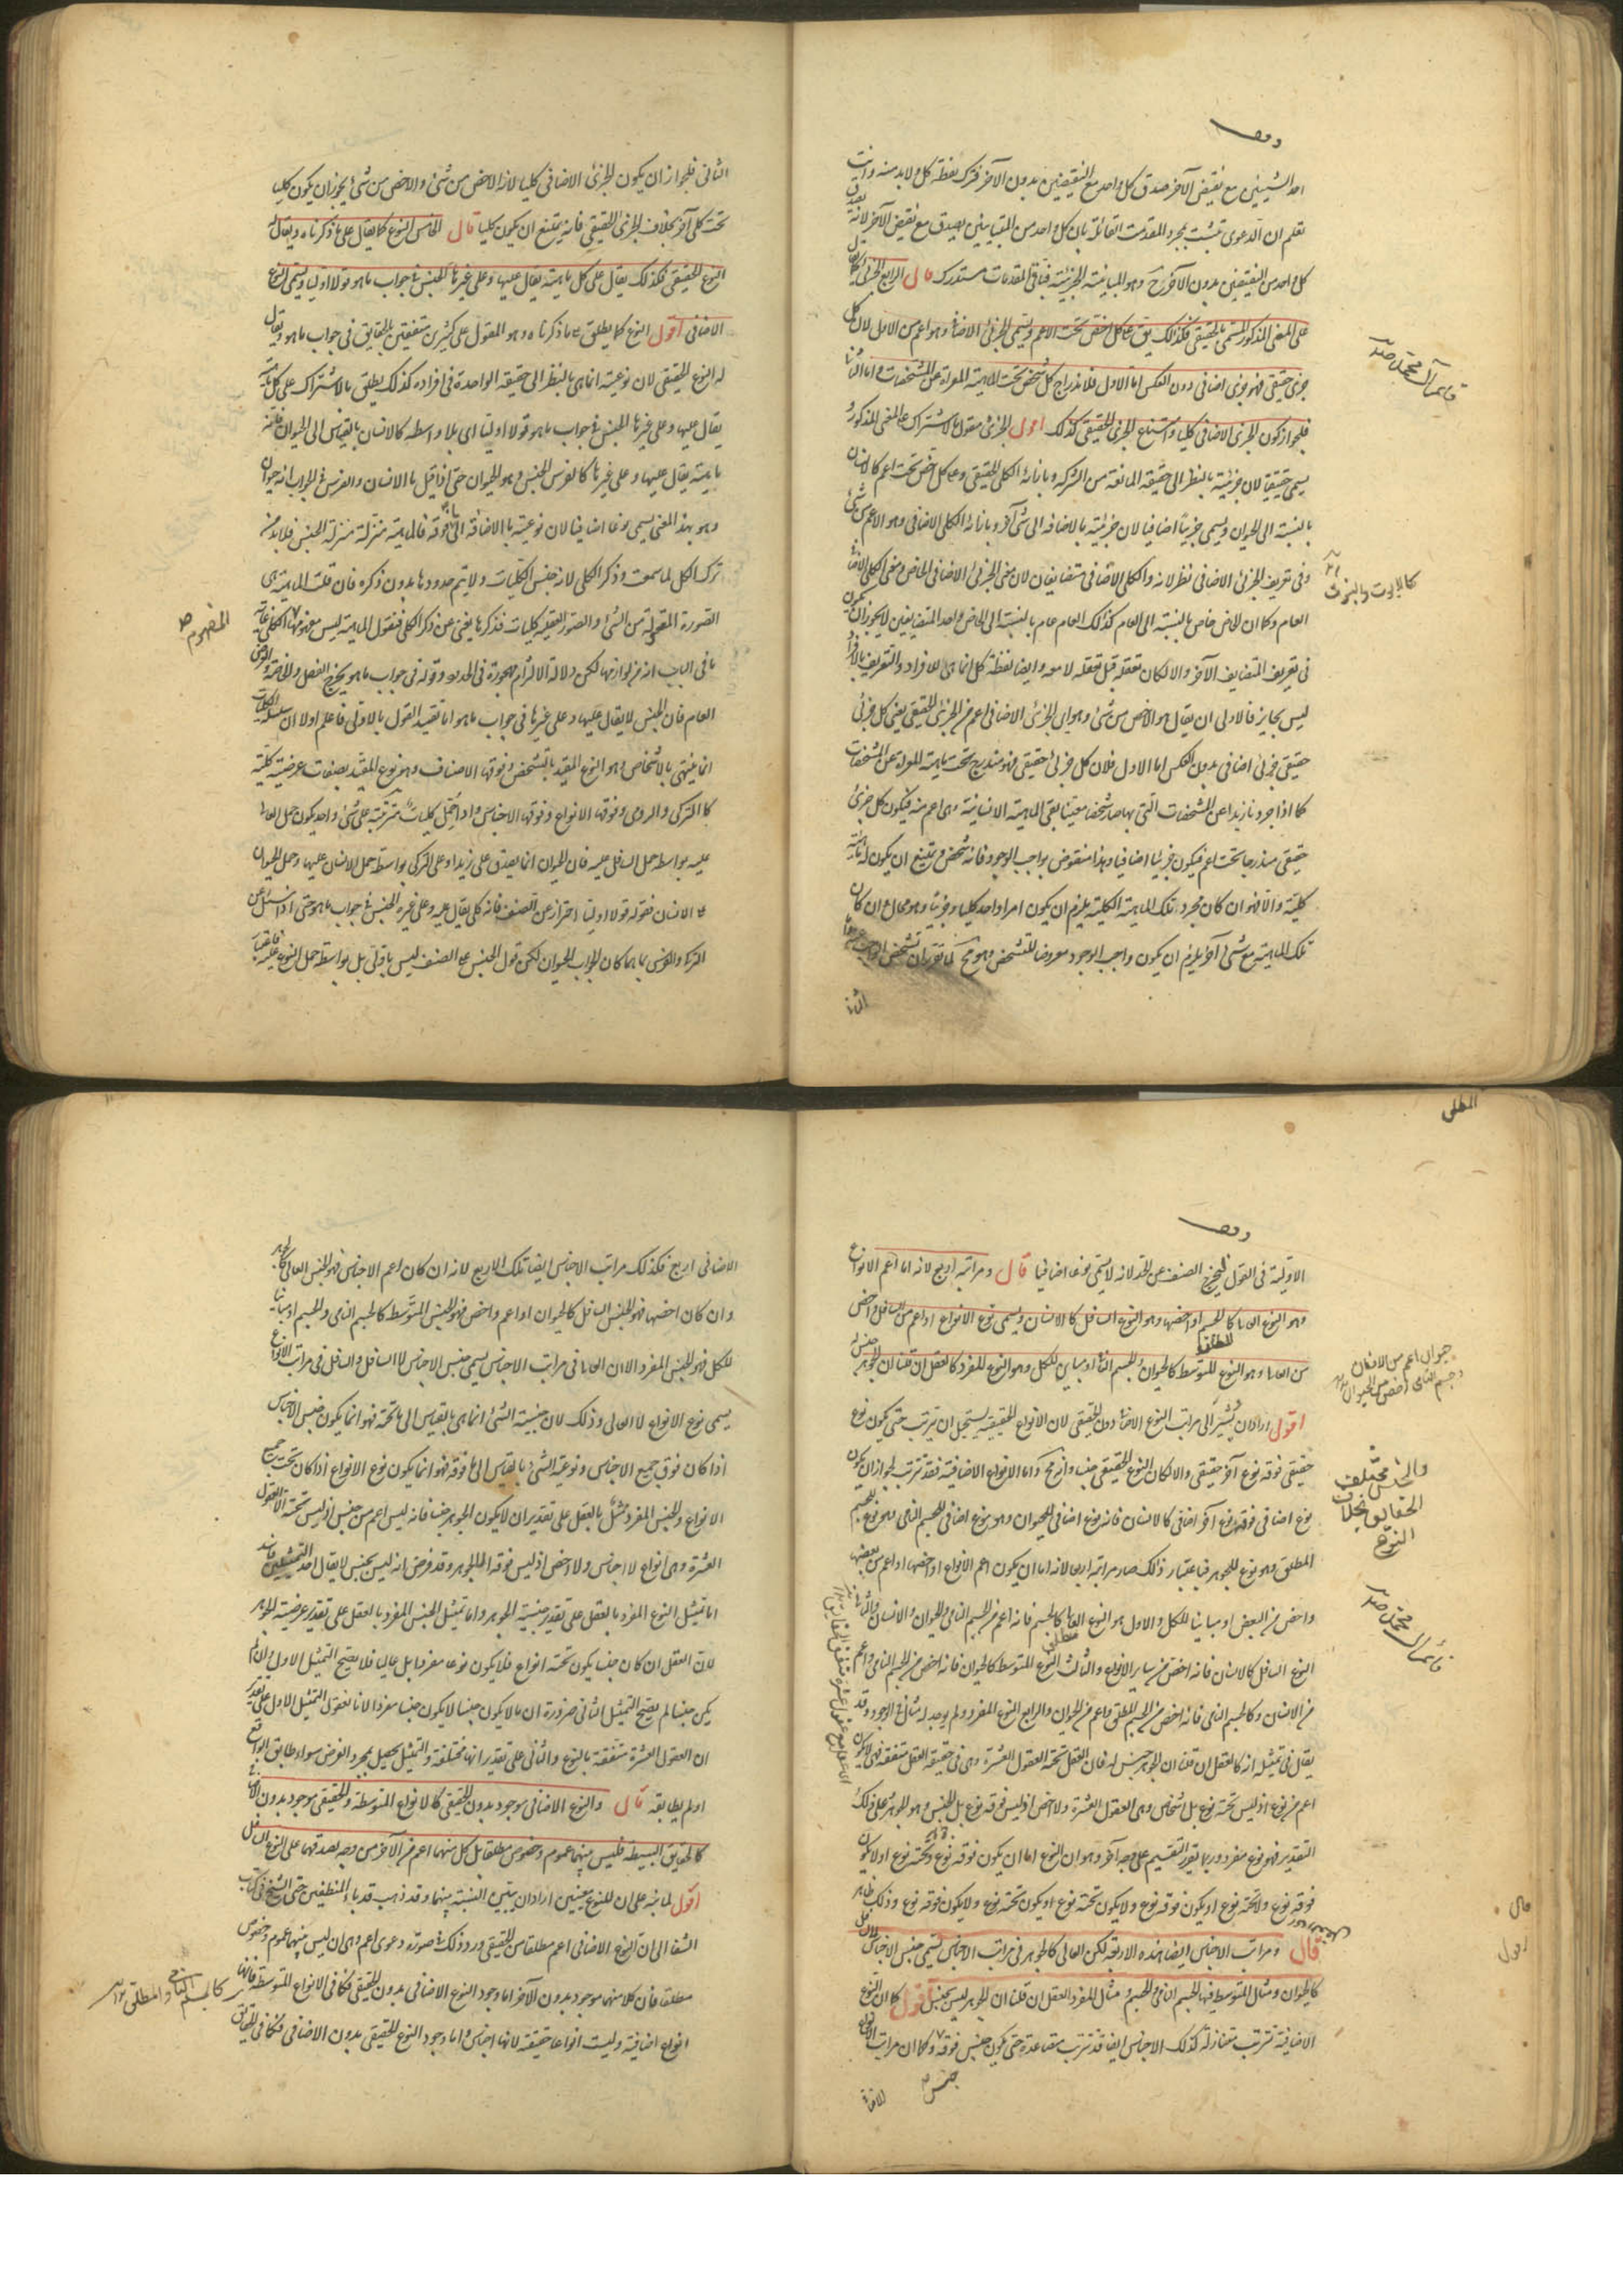 وقف
احد الشيئين مع نقيض الآخر صدق كل واحد مع النقيضين بدون الآخر فترك لفظة كل ولابد منه وانت
تعلم ان الدعوى تثبت بمجرد المقدمة القائلة بان كل واحد من المتباينين يصدق مع نقيض الآخر لانه يصدق
كل واحد من النقيضين بدون الآخر ح وهو المباينة الجزئية فباقى المقدمات مستدرك قال الرابع الجزئى كما يقال
على المعنى المذكور المسمى بالحقيقى فكذلك يق على كل اخص تحت الاعم ويسمى الجزئى الاضافى وهو اعم من الاول لان كل
جزئى حقيقى فهو جزئى اضافى دون العكس اما الاول فلاندراج كل شخص تحت الماهية المعراة عن المشخصات واما الثانى
فلجواز كون الجزئى الاضافى كليا وامتناع الجزئى الحقيقى كذلك اقول الجزئى مقول بالاشتراك على المعنى المذكور و
يسمى حقيقيا لان جزئيته بالنظر الى حقيقة المانعة من الشركة وبازائه الكلى الحقيقى وعلى كل اخص تحت اعم كالانسان
بالنسبة الى الحيوان ويسمى جزئيا اضافيا لان جزئيته بالاضافة الى شئ آخر وبازائه الكلى الاضافى وهو الاعم من شئ
وفى تعريف الجزئى الاضافى نظر لانه والكلى الاضافى متضايفان لان معنى الجزئى الاضافى الخاص ومعنى الكلى الاضافى
العام وكما ان الخاص خاص بالنسبة الى العام كذلك العام عام بالنسبة الى الخاص واحد المتضايفين لا يجوز ان يكون
فى تعريف المتضايف الآخر والا لكان تعقله قبل تعقله لا معه وايضا لفظة كل انما هى للافراد والتعريف بالافراد
ليس بجايز فالاولى ان يقال هو الاخص من شئ وهو اى الجزئى الاضافى اعم من الجزئى الحقيقى يعنى كل جزئى
حقيقى جزئى اضافى بدون العكس اما الاول فلان كل جزئى حقيقى فهو مندرج تحت ماهيته المعراة عن المشخصات
كما اذا جردنا زيدا عن المشخصات التى بها صار شخصا معينا بقى الماهية الانسانية وهى اعم منه فيكون كل جزئى
حقيقى مندرجا تحت اعم فيكون جزئيا اضافيا وهذا منقوض بواجب الوجود فانه شخص ويمتنع ان يكون له ماهية
كلية والا فهو ان كان مجرد تلك الماهية الكلية يلزم ان يكون امر واحد كليا وجزئيا وهو محال وان كان
تلك الماهية مع شئ آخر يلزم ان يكون واجب الوجود معروضا للتشخص وهو مح لما تقرر ان تشخص الواجب عينه
كالابوت والبنوت
الثانى فلجواز ان يكون الجزئى الاضافى كليا لانه الاخص من شئ والاخص من شئ يجوز ان يكون كليا
تحت كلى آخر بخلاف الجزئى الحقيقى فانه يمتنع ان يكون كليا قال الخامس النوع كما يقال على ما ذكرناه ويقال له
النوع الحقيقى فكذلك يقال على كل ماهية يقال عليها وعلى غيرها الجنس فى جواب ما هو قولا اوليا ويسمى النوع
الاضافى اقول النوع كما يطلق على ما ذكرناه وهو المقول على كثيرين متفقين بالحقايق فى جواب ما هو ويقال
له النوع الحقيقى لان نوعيته انما هى بالنظر الى حقيقته الواحدة فى افراده كذلك يطلق بالاشتراك على كل ماهية
يقال عليها وعلى غيرها الجنس فى جواب ما هو قولا اوليا اى بلا واسطه كالانسان بالقياس الى الحيوان فانه
ماهية يقال عليها وعلى غيرها كالفرس الجنس وهو الحيوان حتى اذا قيل ما الانسان والفرس فى الجواب انه حيوان
وهو بهذا المعنى يسمى نوعا اضافيا لان نوعيته بالاضافة الى ما فوقه فالماهية منزلة منزلة الجنس فلابد من
ترك الكل لما سمعت وذكر الكلى لانه جنس الكليات ولا يتم حدودها بدون ذكره فان قلت الماهية هى
الصورة المعقولة من الشئ والصور العقلية كليات فذكرها يغنى عن ذكر الكلى فنقول الماهية ليس مفهومها الكلى غاية
ما فى الباب انه من لوازمها لكن دلالة الالتزام مهجورة فى الحدود وقوله فى جواب ما هو يخرج الفصل والخاصة والعرض
العام فان الجنس لا يقال عليها وعلى غيرها فى جواب ما هو اما تقييد القول بالاولى فاعلم اولا ان سلسلة الكليات
انما ينتهى بالاشخاص وهو النوع المقيد بالتشخص وفوقها الاصناف وهو نوع المقيد بصفات عرضية كلية
كالتركى والرومى وفوقها الانواع وفوقها الاجناس واذا حمل كليات مترتبة على شئ واحد يكون حمل العالى
عليه بواسطه حمل السافل عليه فان الحيوان انما يصدق على زيد او على التركى بواسطة حمل الانسان عليها وحمل الحيوان
على الانسان فقوله قولا اوليا احتراز عن الصنف فانه كلى يقال عليه وعلى غيره الجنس فى جواب ما هو حتى اذا سئل عن
التركى والفرس بما هما كان الجواب الحيوان لكن قول الجنس على الصنف ليس باولى بل بواسطة حمل النوع عليه فباعتبار
المفهوم
وقف
الاولية فى القول يخرج الصنف عن الحد لانه لا يسمى نوعا اضافيا قال ومراتبه اربع لانه اما اعم الانواع
وهو النوع العالى كالجسم او اخصها وهو النوع السافل كالانسان ويسمى نوع الانواع او اعم من السافل واخص
من العالى وهو النوع المتوسط كالحيوان والجسم النامى او مباين للكل وهو النوع المفرد كالعقل ان قلنا ان الجوهر جنس له
اقول اراد ان يشير الى مراتب النوع الاضافى دون الحقيقى لان الانواع الحقيقية يستحيل ان يترتب حتى يكون نوع
حقيقى فوقه نوع آخر حقيقى والا لكان النوع الحقيقى جنسا وانه مح واما الانواع الاضافية فقد تترتب لجواز ان يكون
نوع اضافى فوقه نوع آخر اضافى كالانسان فانه نوع اضافى للحيوان وهو نوع اضافى للجسم النامى وهو نوع للجسم
المطلق وهو نوع للجوهر فباعتبار ذلك صار مراتبه اربعا لانه اما ان يكون اعم الانواع او اخصها او اعم من بعضها
واخص من البعض او مباينا للكل والاول هو النوع العالى كالجسم فانه اعم من الجسم النامى والحيوان والانسان والثانى
النوع السافل كالانسان فانه اخص من ساير الانواع والثالث النوع المتوسط كالحيوان فانه اخص من الجسم النامى واعم
من الانسان وكالجسم النامى فانه اخص من الجسم المطلق واعم من الحيوان والرابع النوع المفرد ولم يوجد له مثال فى الوجود وقد
يقال فى تمثيله انه كالعقل ان قلنا ان الجوهر جنس له فان العقل تحته العقول العشرة وهى فى حقيقة العقل متفقة فهو لا يكون
اعم من نوع اذ ليس تحته نوع بل اشخاص وهى العقول العشرة ولا اخص اذ ليس فوقه نوع بل الجنس وهو الجوهر فعلى ذلك
التقدير فهو نوع مفرد وربما يقرر التقسيم على وجه آخر وهو ان النوع اما ان يكون فوقه نوع وتحته نوع او لا يكون
فوقه نوع ولا تحته نوع او يكون فوقه نوع ولا يكون تحته نوع او يكون تحته نوع ولا يكون فوقه نوع وذلك ظاهر
قال ومراتب الاجناس ايضا هذه الاربعة لكن العالى كالجوهر فى مراتب الاجناس يسمى جنس الاجناس لا السافل
كالحيوان ومثال المتوسط فيها الجسم النامى والجسم ومثال المفرد العقل ان قلنا ان الجوهر ليس بجنس اقول كما ان النوع
الاضافية تترتب متنازلة كذلك الاجناس ايضا قد تترتب متصاعدة حتى يكون جنس فوقه وكما ان مراتب الانواع
جنس
حيوان اعم من الانسان
الحقائق بخلاف
النوع
قال
اقول
الاضافى اربع فكذلك مراتب الاجناس ايضا تلك الاربع لانه ان كان اعم الاجناس فهو الجنس العالى كالجوهر
وان كان اخصها فهو الجنس السافل كالحيوان او اعم واخص فهو الجنس المتوسط كالجسم النامى والجسم او مباينا
للكل فهو الجنس المفرد الا ان العالى فى مراتب الاجناس يسمى جنس الاجناس لا السافل والسافل فى مراتب الانواع
يسمى نوع الانواع لا العالى وذلك لان جنسية الشئ انما هى بالقياس الى ما تحته فهو انما يكون جنس الاجناس
اذا كان فوق جميع الاجناس ونوعية الشئ بالقياس الى ما فوقه فهو انما يكون نوع الانواع اذا كان تحت جميع
الانواع والجنس المفرد ممثل بالعقل على تقدير ان لا يكون الجوهر جنسا فانه ليس اعم من جنس اذ ليس تحته الا العقول
العشرة وهى انواع لا اجناس ولا اخص اذ ليس فوقه الا الجوهر وقد فرض انه ليس بجنس لا يقال احد التمثيلين فاسد
اما تمثيل النوع المفرد بالعقل على تقدير جنسية الجوهر واما تمثيل الجنس المفرد بالعقل على تقدير عرضية الجوهر
لان العقل ان كان جنسا يكون تحته انواع فلا يكون نوعا مفردا بل عاليا فلا يصح التمثيل الاول وان لم
يكن جنسا لم يصح التمثيل الثانى ضرورة ان ما لا يكون جنسا لا يكون جنسا مفردا لانا نقول التمثيل الاول على تقدير
ان العقول العشرة متفقة بالنوع والثانى على تقدير انها مختلفة والتمثيل يحصل بمجرد الفرض سواء طابق الواقع
او لم يطابقه قال والنوع الاضافى موجود بدون الحقيقى كالانواع المتوسطة والحقيقى موجود بدون الاضافى
كالحقايق البسيطة فليس بينهما عموم وخصوص مطلقا بل كل منهما اعم من الآخر من وجه لصدقهما على النوع السافل
اقول لما نبه على ان للنوع معنيين اراد ان يبين النسبة بينهما وقد ذهب قدماء المنطقيين حتى الشيخ فى كتاب
الشفا الى ان النوع الاضافى اعم مطلقا من الحقيقى ورد ذلك فى صورة دعوى اعم وهى ان ليس بينهما عموم وخصوص
مطلقا فان كلا منهما موجود بدون الآخر اما وجود النوع الاضافى بدون الحقيقى فكما فى الانواع المتوسطة فانها
انواع اضافية وليست انواعا حقيقة لانها اجناس واما وجود النوع الحقيقى بدون الاضافى فكما فى الحقايق